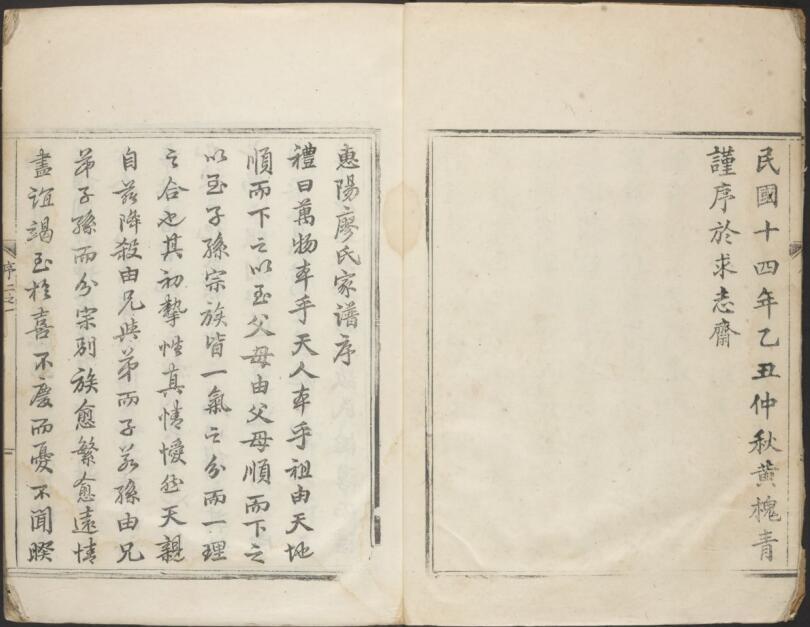 民國十四年乙丑仲秋黄槐青
謹序於求志齋
惠陽廖氏家譜序
禮曰萬物本乎天人本乎祖由天地
順而下之以至父母由父母順而下之
以至子孫宗族皆一氣之分而一理
之合也其初摯性真情懓然天親
自茲降殺由兄與弟而子若孫由兄
弟子孫而分宗别族愈繁愈遠情
盡誼竭至於喜不慶而憂不聞暌
序二之一